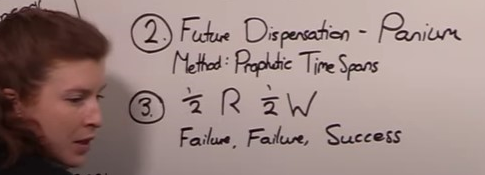 ② Future Dispensation - Panium
Method: Prophetic Time Spans
③ ½ R ½ W
Failure, Failure, Success